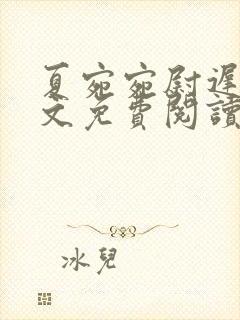 夏宛宛尉遲
文免費閱讀
冰兒